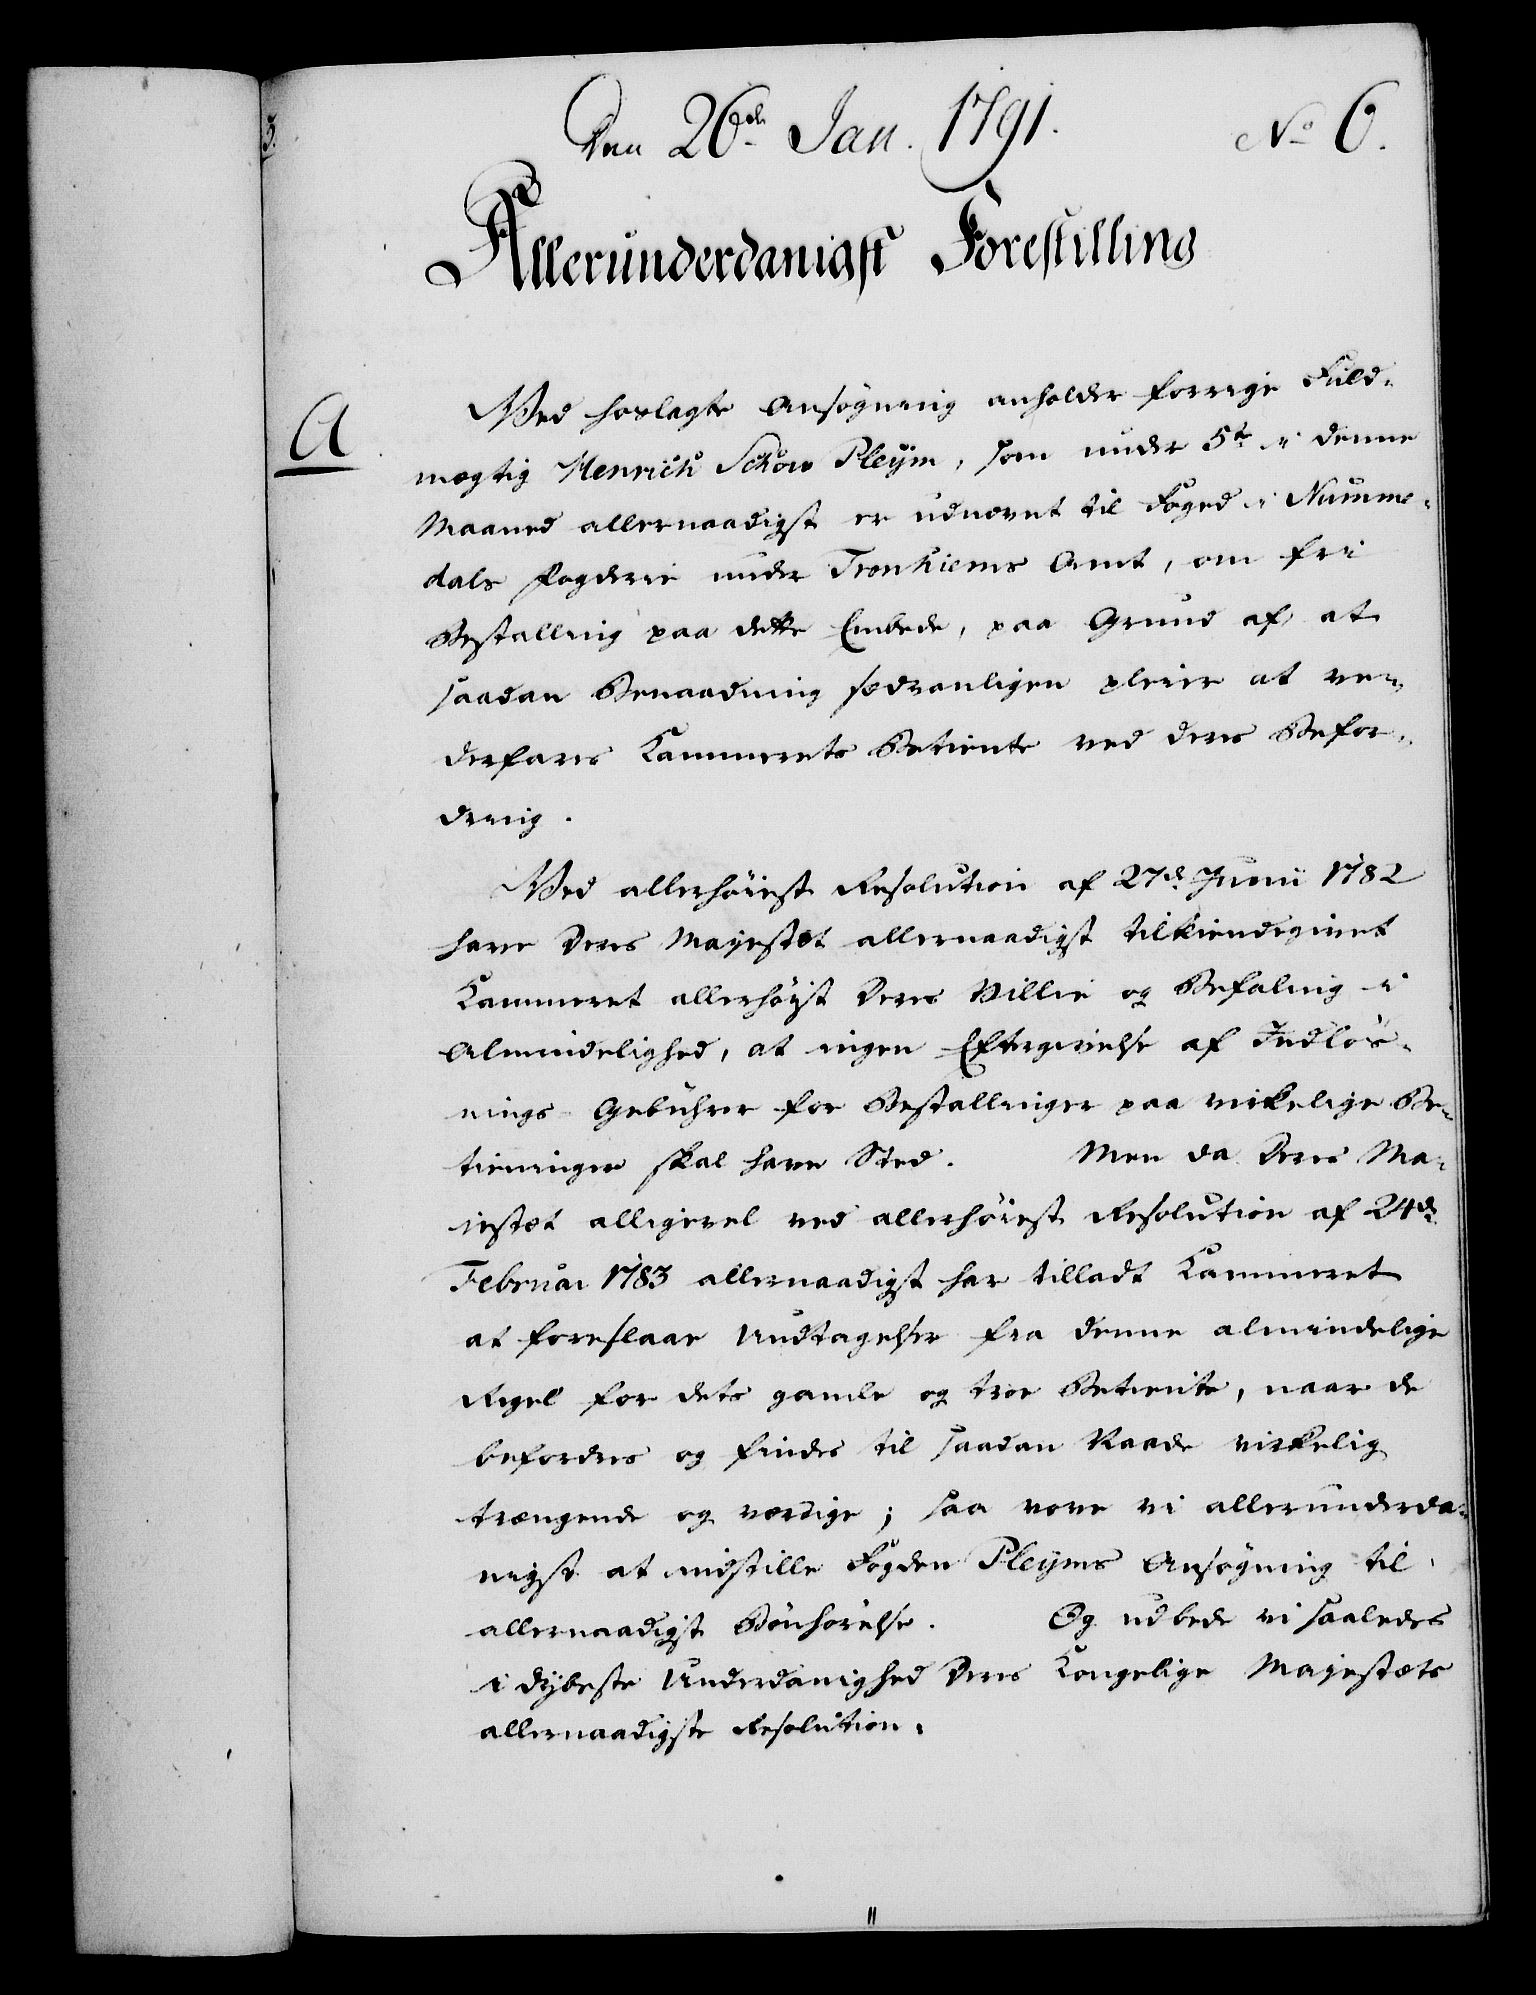 Den 26de Jan. 1791. No 6.
Allerunderdanigst Forestilling
A
Med hoslagte Ansøgning anholder forrige Fuld-
mægtig Henrich Schow Pleym, som under 5te i denne
Maaned allernaadigst er udnævnt til Foged i Numme-
dals Fogderie under Tronhiems Amt, om fri
Bestalling paa dette Embede, paa Grund af at
saadan Benaadning sædvanligen pleier at ve-
derfares Kammerets Betiente ved deres Befor-
dring.
Ved allerhöiest Resolution af 27de Junii 1782
have Deres Majestæt allernaadigst tilkiendegivet
Kammeret allerhöyst Deres Villie og Befaling i
Almindelighed, at ingen Eftergivelse af Indlös-
nings-Gebuhrer for Bestallinger paa virkelige Be-
tieninger skal have Sted. Men da Deres Ma-
jestæt alligevel ved allerhöiest Resolution af 24de
Februar 1783 allernaadigst har tilladt Kammeret
at foreslaae Undtagelser fra denne almindelige
Regel for dets gamle og troe Betiente, naar de
befordres og findes til saadan Naade virkelig
trængende og værdige; saa vove vi allerunderda-
nigst at indstille Fogden Pleyms Ansøgning til
allernaadigst Bönhörelse. Og udbede vi saaledes
i dybeste Underdanighed Deres Kongelige Majestæts
allernaadigste Resolution.